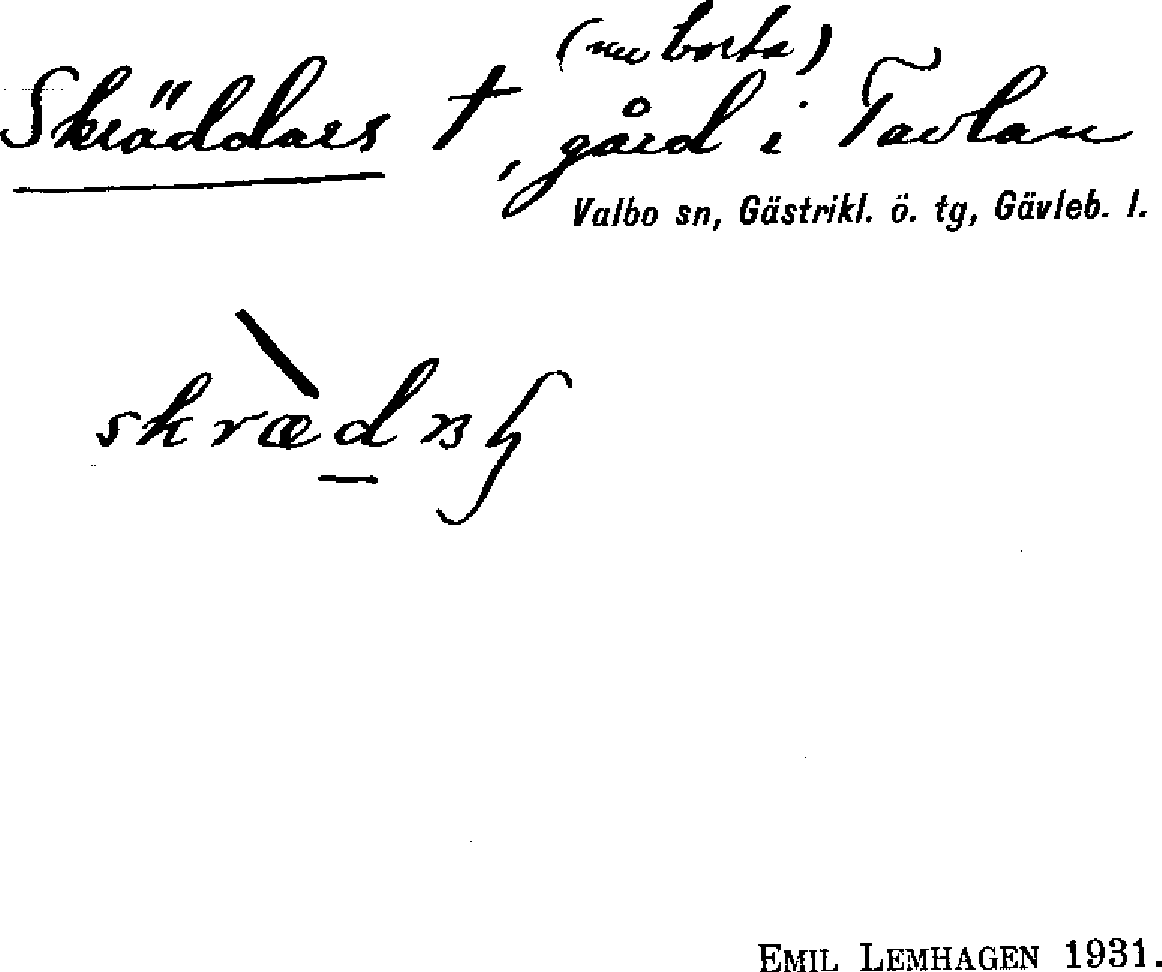 (nu borta)
Skräddars †, gård i Tavlan
Valbo sn, Gästrikl. ö. tg, Gävleb. l.
EMIL LEMHAGEN 1931.